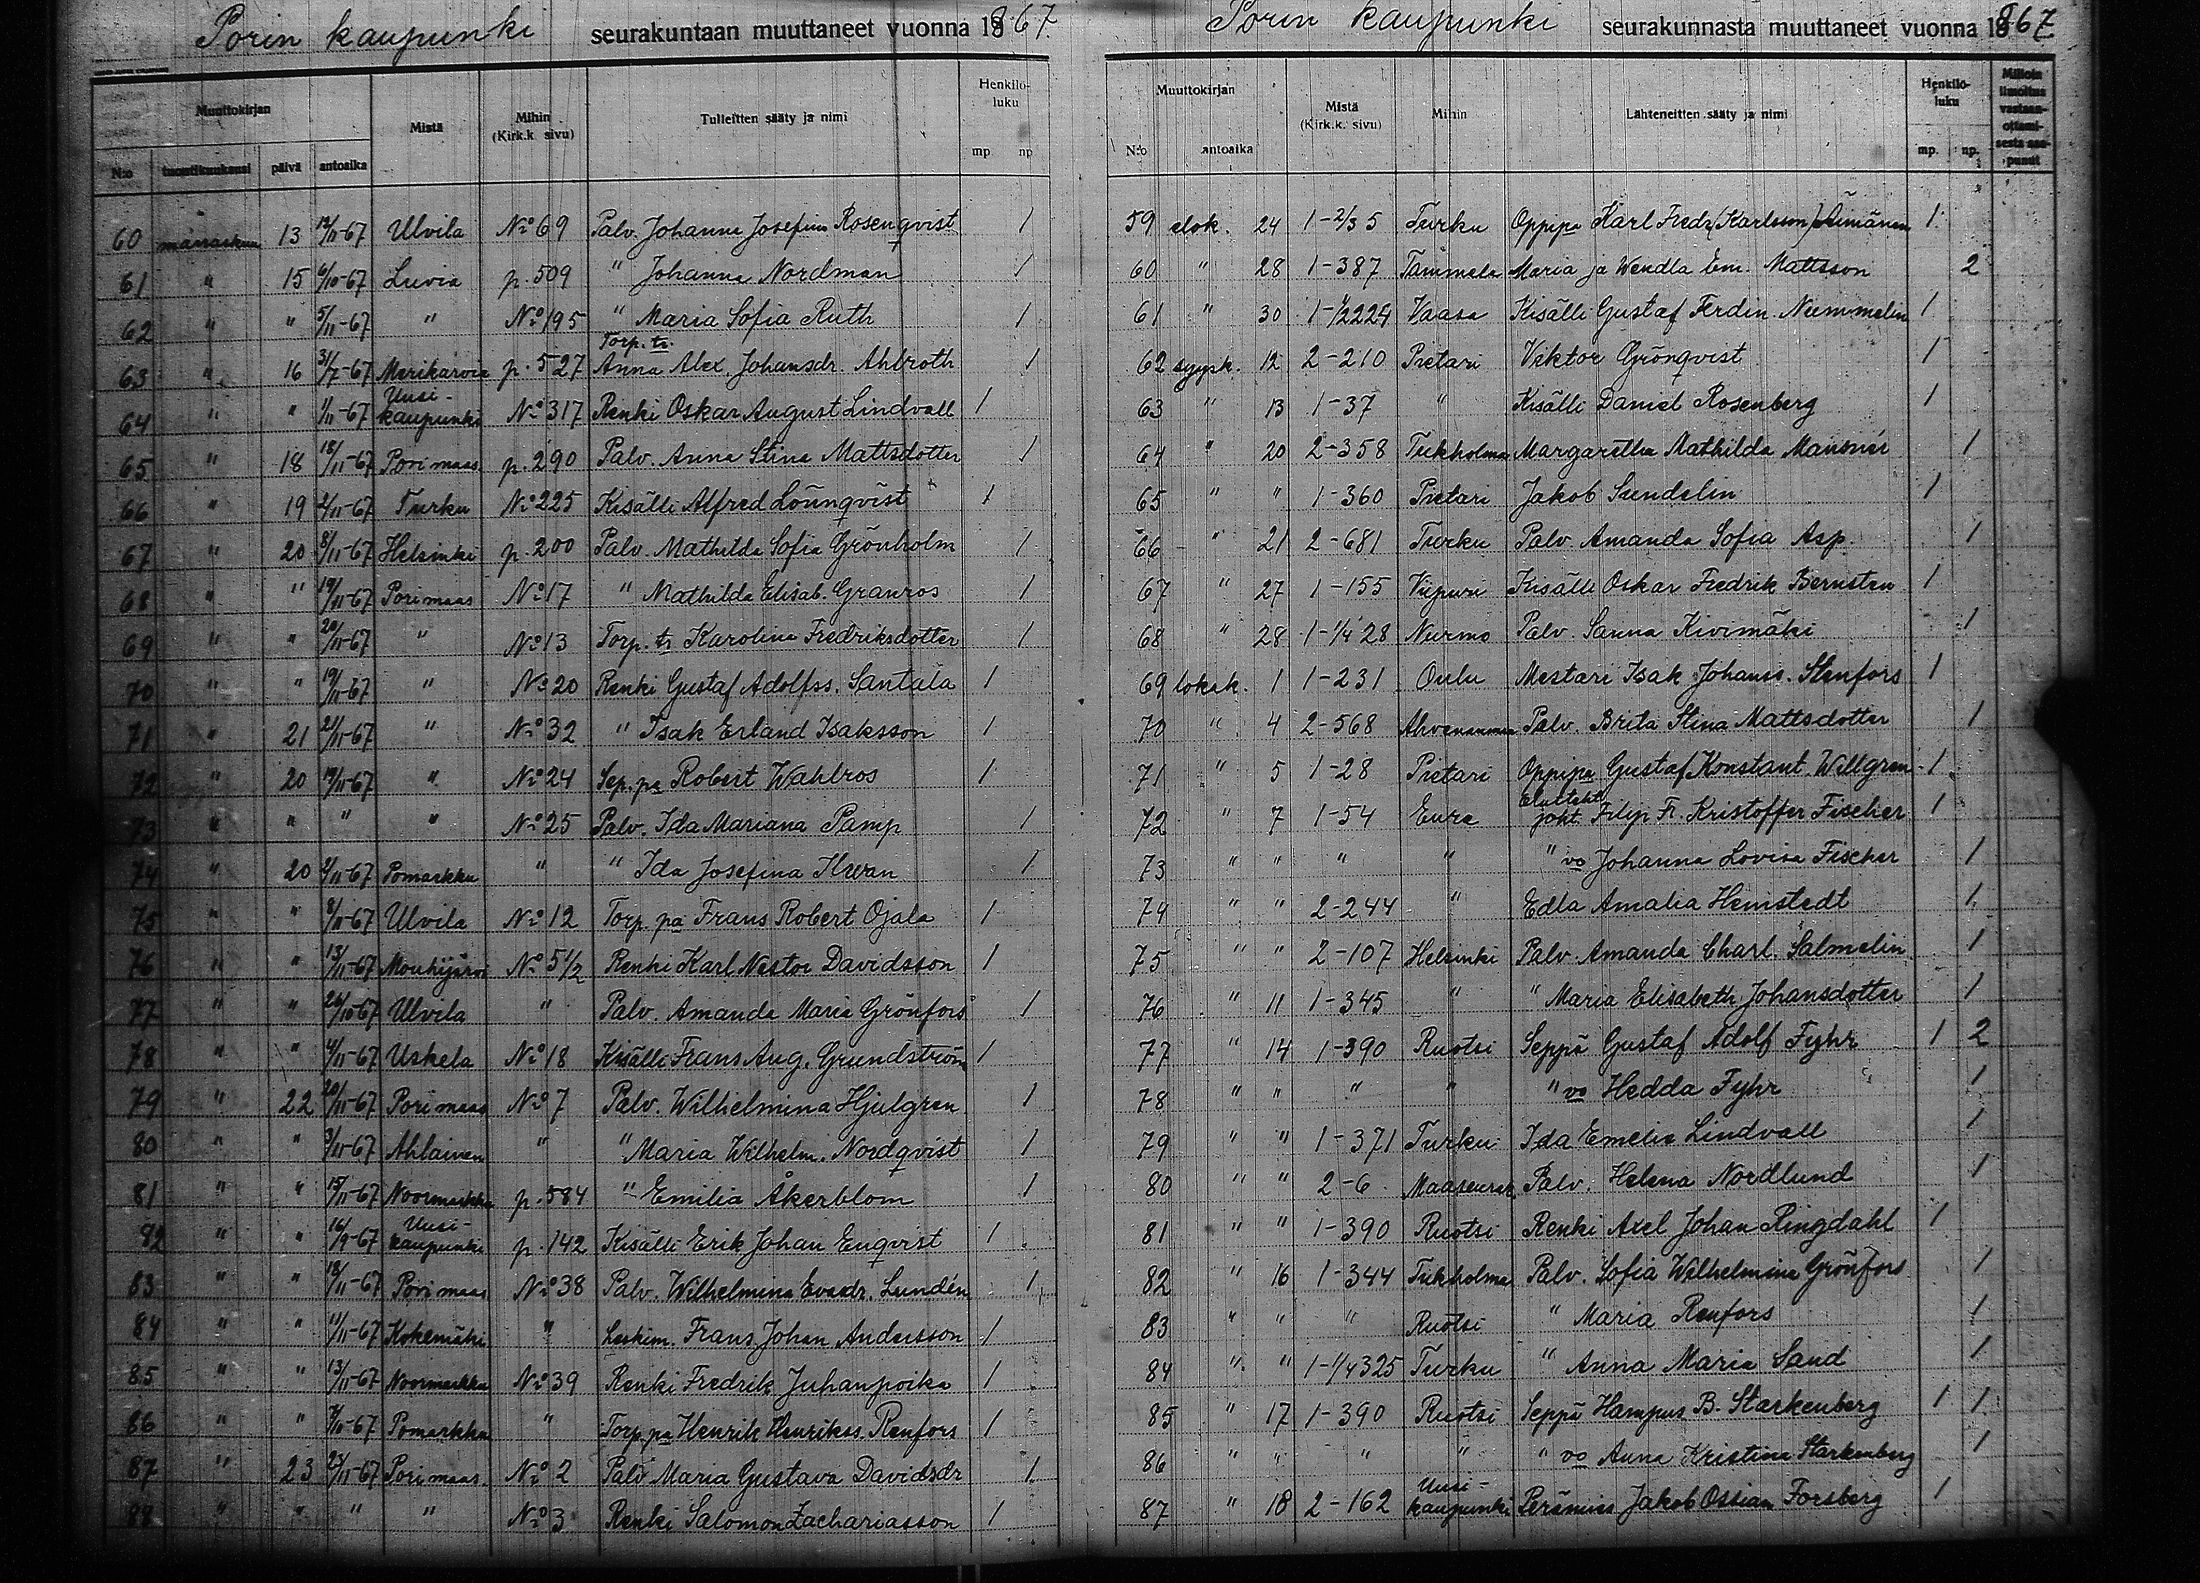 Porin kaupunki seurakuntaan muuttaneet vuonna 1867.
Muuttokirjan Mistä Mihin (Kirk.k. sivu) Tulleitten sääty ja nimi Henkilö-luku
N:o tuontikuukausi päivä antoaika mp. np.
60 marraskuu 13 12/11-67 Ulvila No 69 Palv. Johanna Josefina Rosenqvist 1
61 " 15 6/10-67 Luvia p. 509 " Johanna Nordman 1
62 " " 5/11-67 " No 195 " Maria Sofia Ruth 1
63 " 16 31/7-67 Merikarvia p. 527 Torp. tr. Anna Alex. Johansdr. Ahlroth 1
64 " " 1/11-67 Uusi-kaupunki No 317 Renki Oskar August Lindvall 1
65 " 18 18/11-67 Pori maas. p. 290 Palv. Anna Stina Mattsdotter 1
66 " 19 2/11-67 Turku No 225 Kisälli Alfred Lönnqvist 1
67 " 20 8/11-67 Helsinki p. 200 Palv. Mathilda Sofia Grönholm 1
68 " " 19/11-67 Pori maas No 17 " Mathilda Elisab. Granros 1
69 " " 20/11-67 " No 13 Torp. tr Karolina Fredriksdotter 1
70 " " 19/11-67 " No 20 Renki Gustaf Adolfss. Santala 1
71 " 21 21/11-67 " No 32 " Isak Erland Isaksson 1
72 " 20 19/11-67 " No 24 Sep. pa Robert Wahlros 1
73 " " " " No 25 Palv. Ida Mariana Pamp 1
74 " 20 /11-67 Pomarkku " " Ida Josefina Ilvan 1
75 " " 8/11-67 Ulvila No 12 Torp. pa Frans Robert Ojala 1
76 " " 13/11-67 Mouhijärvi No 5 1/2 Renki Karl Nestor Davidsson 1
77 " " 26/10-67 Ulvila " Palv. Amanda Maria Grönfors 1
78 " " 4/11-67 Uskela No 18 Kisälli Frans Aug. Grundström 1
79 " 22 20/11-67 Pori maas No 7 Palv. Wilhelmina Hjulgren 1
80 " " 3/11-67 Ahlainen " " Maria Wilhelm. Nordqvist 1
81 " " 15/11-67 Noormarkku p. 584 " Emilia Åkerblom 1
82 " " 16/9-67 Uusi-kaupunki p. 142 Kisälli Erik Johan Enqvist 1
83 " " 18/11-67 Pori maas No 38 Palv. Wilhelmina Evasdr. Lundén 1
84 " " 11/11-67 Kokemäki " Leskim. Frans Johan Andersson 1
85 " " 13/11-67 Noormarkku No 39 Renki Fredrik Juhanpoika 1
86 " " /10-67 Pomarkku " Torp. pa Henrik Henrikss. Renfors 1
87 " 23 21/11-67 Pori maas. No 2 Palv Maria Gustava Davidsdr 1
88 " " " " No 3 Renki Salomon Zachariasson 1
Porin kaupunki seurakunnasta muuttaneet vuonna 1867
Muuttokirjan Mistä (Kirk.k. sivu) Mihin Lähteneitten sääty ja nimi Henkilö-luku Milloin ilmoitus vastaan-ottami-sesta saa-punut
N:o antoaika mp. np.
59 elok. 24 1-2/3 5 Turku Oppipa Karl Fredr. (Karlsson) 1
60 " 28 1-387 Tammela Maria ja Wendla Em. Mattsson 2
61 " 30 1-1/2224 Vaasa Kisälli Gustaf Ferdin. Nummelin 1
62 syysk. 12 2-210 Pietari Viktor Grönqvist 1
63 " 13 1-37 " Kisälli Daniel Rosenberg 1
64 " 20 2-358 Tukholma Margaretha Mathilda 1
65 " " 1-360 Pietari Jakob Sundelin 1
66 " 21 2-681 Turku Palv. Amanda Sofia Asp. 1
67 " 27 1-155 Viipuri Kisälli Oskar Fredrik Bernsten 1
68 " 28 1-1/4 28 Nurmo Palv. Sanna Kivimäki 1
69 lokak. 1 1-231 Oulu Mestari Isak Johanss. Stenfors 1
70 " 4 2-568 Ahvenanmaa Palv. Brita Stina Mattsdotter 1
71 " 5 1-28 Pietari Oppipa Gustaf Konstant. Willgren 1
72 " 7 1-54 Eura joht. Filip Fr. Kristoffer Fischer 1
73 " " " " " vo Johanna Lovisa Fischer 1
74 " " 2-244 " Edla Amalia Heinstedt 1
75 " " 2-107 Helsinki Palv. Amanda Charl. Salmelin 1
76 " 11 1-345 " " Maria Elisabeth Johansdotter 1
77 " 14 1-390 Ruotsi Seppä Gustaf Adolf Fyhr 1 2
78 " " " " " vo Hedda Fyhr 1
79 " " 1-371 Turku Ida Emelia Lindvall 1
80 " " 2-6 Maaseurak. Palv. Helena Nordlund 1
81 " " 1-390 Ruotsi Renki Axel Johan Ringdahl 1
82 " 16 1-344 Tukholma Palv. Sofia Wilhelmina Grönfors 1
83 " " " Ruotsi " Maria Renfors 1
84 " " 1-1/4325 Turku " Anna Maria Sand 1
85 " 17 1-390 Ruotsi Seppä Hampus B. Starkenberg 1 1
86 " " " " " vo Anna Kristina Starkenberg 1
87 " 18 2-162 Uusi-kaupunki Perämies Jakob Ossian Forsberg 1